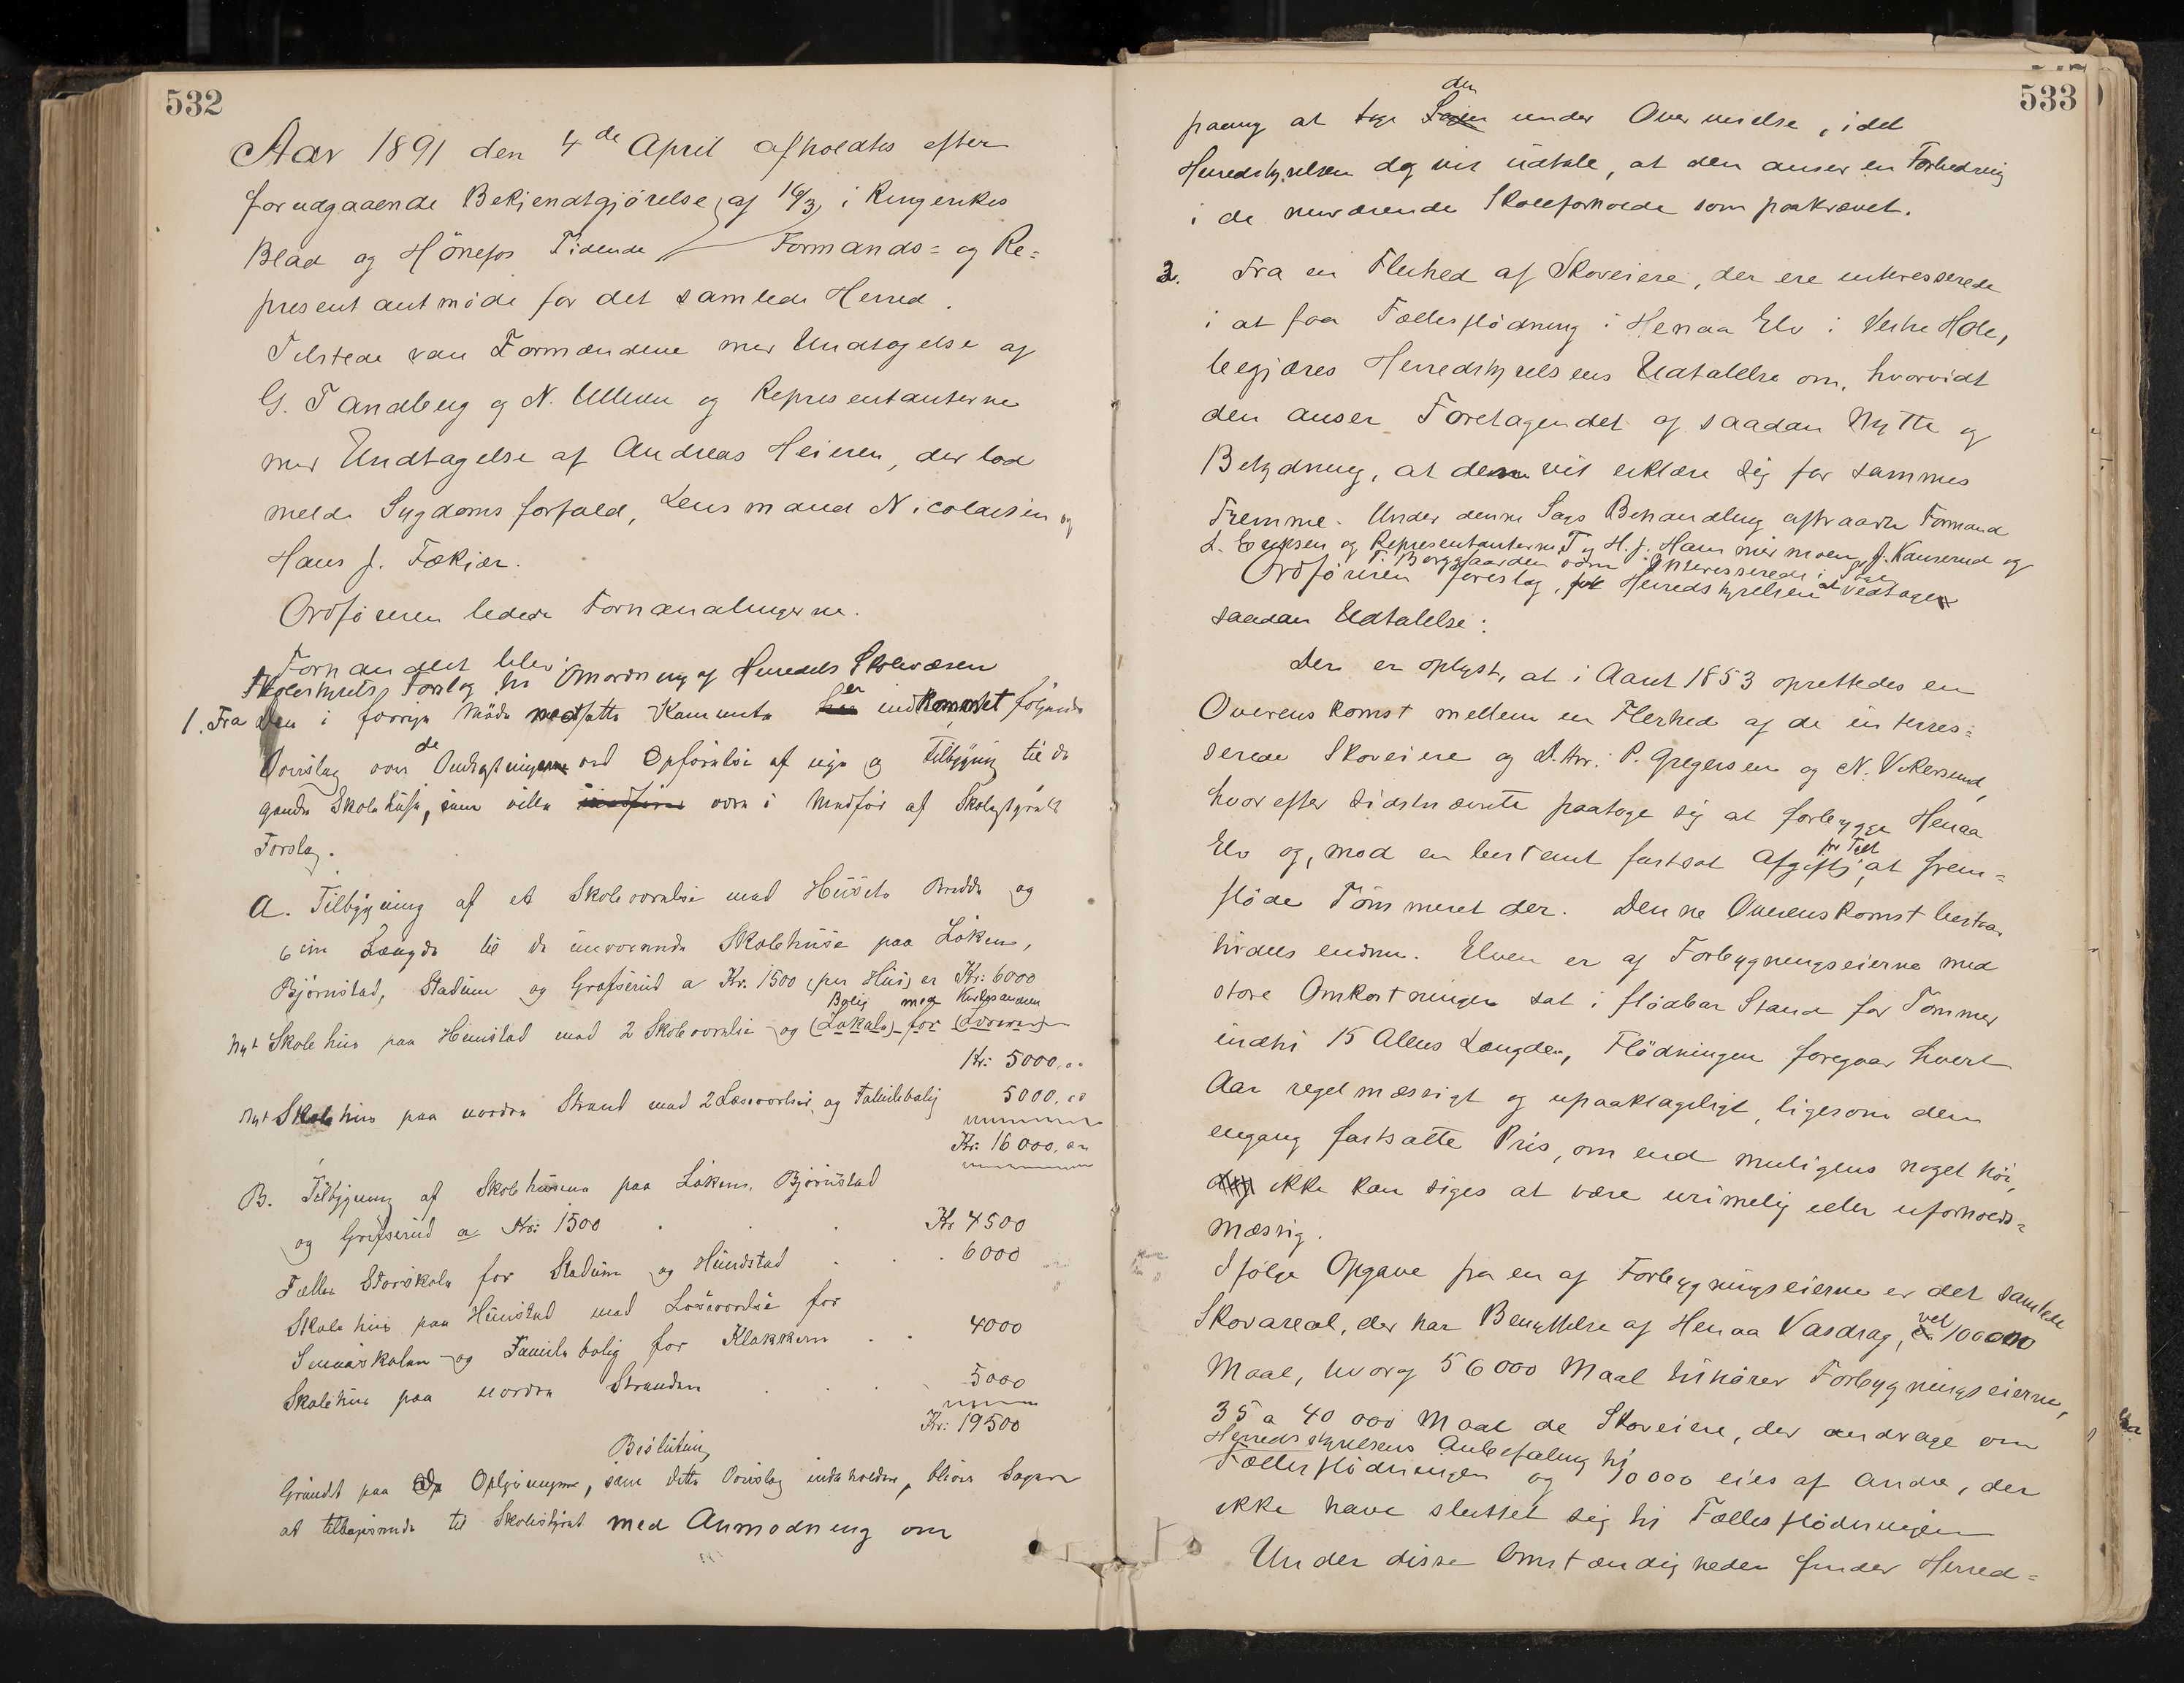 532
Aar 1891 den 4de April afholdtes efter
forudgaaende Bekjendtgjörelse af 16/3 i Ringerikes
Blad og Hönefos Tidende Formands= og Re=
presentantmöde for det samlede Herred.
Tilstede var Formændene med Undtagelse af
G. Tandberg og N. Ullern og Representanterne
med Undtagelse af Andreas Heieren, der lod
melde Sygdoms forfald, Lensmand Nicolaisen og
Hans J. Fækjær.
Ordföreren ledede Forhandlingerne.
Forhandlet blev:
Skolestyrets Forslag til Omordning af Herredets Skolevæsen
1. Fra den i forrige Möde nedsatte Komite er indkommet fölgende
Overslag over de Omkostninger ved Opförelse af nye og Tilbygning til de
gamle Skolehuse, som ville være i Medför af Skolestyrets
Forslag.
A. Tilbygning af et Skoleværelse med Husets Bredde og
6 m Længde til de nuværende Skolehuse paa Löken,
Björnstad, Stadum og Grøfserud a Kr. 1500 (per Hus) er Kr: 6000
Bolig med Kirkesanger
Nyt Skolehus paa Hemstad med 2 Skoleværelse og (Lokale) for (Læreren)
Kr: 5000,00
Nyt Skolehus paa nordre Strand med 2 Læseværelser og Familiebolig 5000,00
Kr: 16000,00
B. Tilbygning af Skolehusene paa Löken, Björnstad
og Grøfserud a Kr: 1500 . . . Kr 4500
Fælles Storskole for Stadum og Hundstad . . . 6000
Skolehus paa Hundstad med Læseværelse for
Smaaskolen og Familiebolig for Klokkeren . . 4000
Skolehus paa nordre Stranden . . . 5000
Kr: 19500
Beslutning
Grundet paa de Oplysninger, som dette Overslag indeholder, bliver Sagen
at tilbagesende til Skolestyret med Anmodning om
533
paany at tage den Sagen under Overveielse, idet
Herredstyrelsen dog vil udtale, at den anser en Forbedring
i de nuværende Skoleforholde som paakrævet.
2. Fra en Flerhed af Skoveiere, der ere interesserede
i at faa Fællesflödning i Henaa Elv i Vestre Hole,
begjæres Herredstyrelsens Udtalelse om, hvorvidt
den anser Foretagendet af saadan Nytte og
Betydning, at den vil erklære sig for sammes
Fremme. Under denne Sags Behandling aftraadte Formand
L. Eriksen og Representanterne T. og H. J. Hammermoen, J. Kanserud og
T. Borggaarden som Interesserede i Sagen
Ordföreren foreslog, Herredstyrelsen at vedtage
saadan Udtalelse:
Der er oplyst, at i Aaret 1853 oprettedes en
Overenskomst mellem en Flerhed af de interes=
serede Skoveiere og D.Hrr. P. Gregersen og N. Vikersund,
hvorefter sidstnævnte paatoge sig at forbygge Henaa
Elv og, mod en bestemt fastsat Afgift pr Tylt, at frem=
flöde Tömmeret der. Denne Overenskomst bestaar
fremdeles endnu. Elven er af Forbygningseierne med
store Omkostninger sat i flödbar Stand for Tömmer
indtil 15 Alens Længder, Flödningen foregaar hvert
Aar regelmæssigt og upaaklageligt, ligesom den
engang fastsatte Pris, om end muligens noget höi,
ikke kan siges at være urimelig eller uforholds=
mæssig.
Ifölge Opgave fra en af Forbygningseierne er det samlede
Skovareal, der har Benyttelse af Henaa Vasdrag, vel 100000
Maal, hvoraf 56000 Maal tilhører Forbygningseierne,
35 a 40 000 Maal de Skoveiere, der andrage om
Herredsstyrelsens Anbefaling til
Fællesflödningen og 10000 eies af Andre, der
ikke have sluttet sig til Fællesflödningen
Under disse Omstændigheder finder Herred=